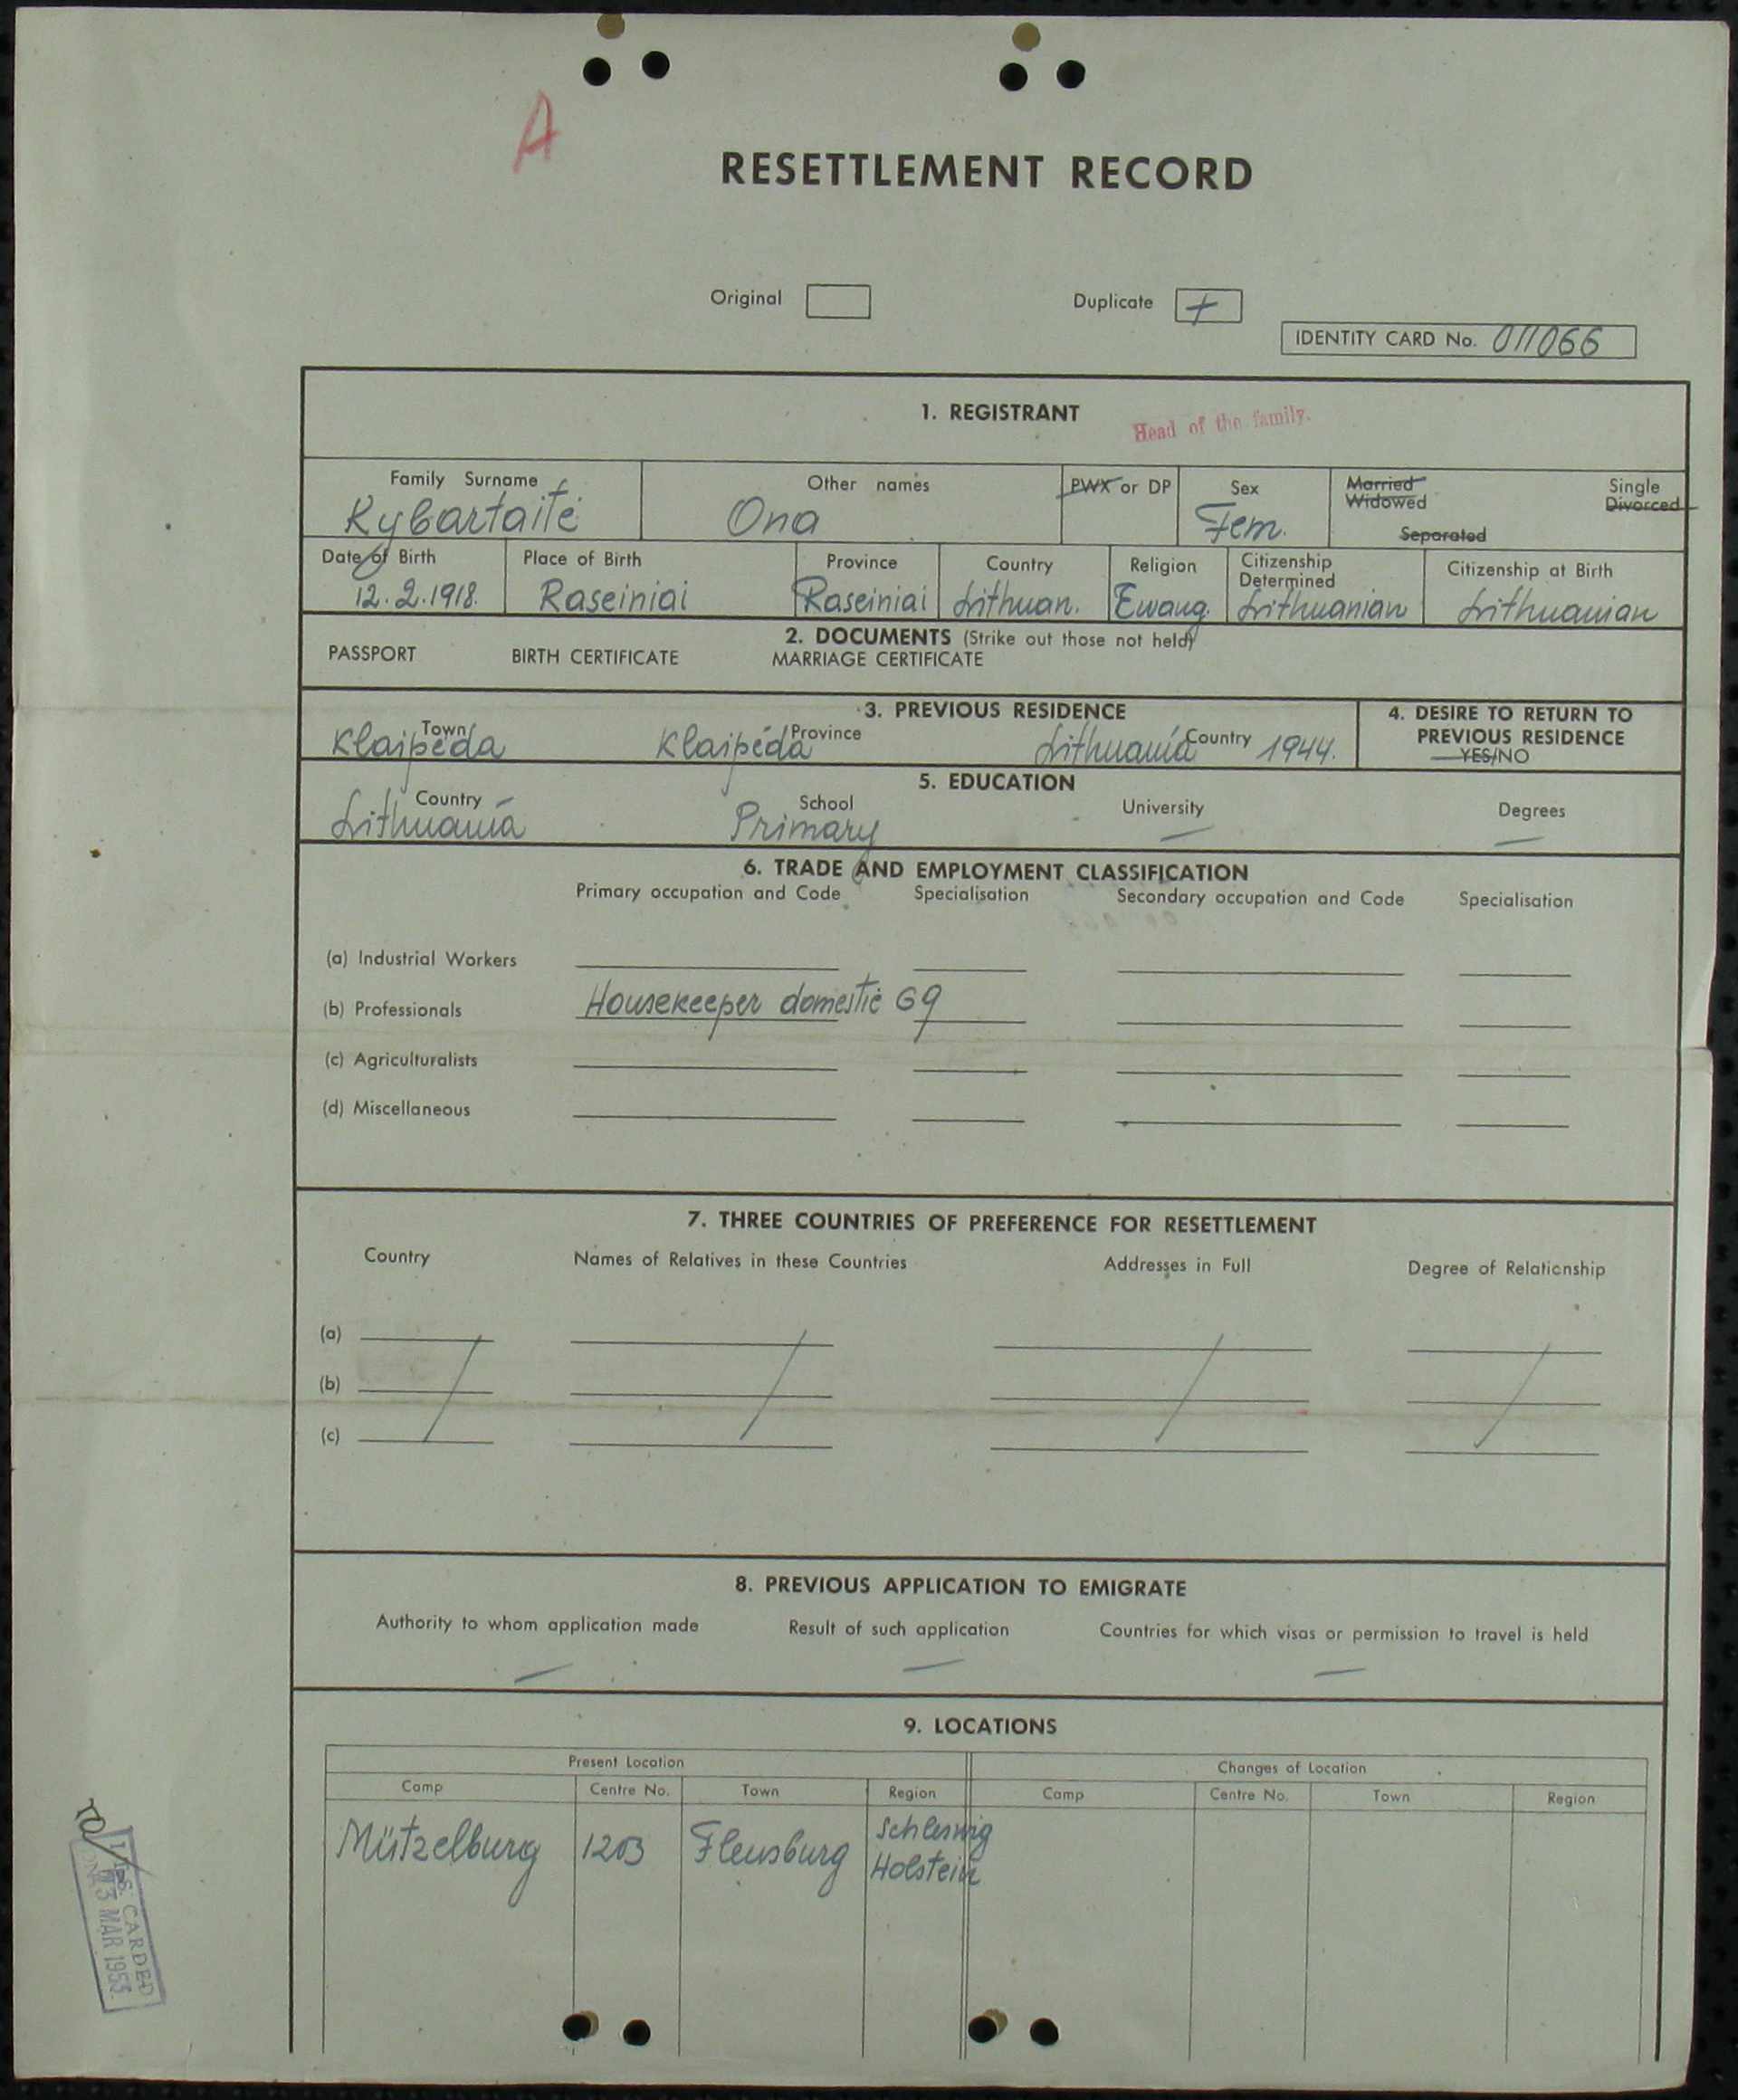 A
RESETTLEMENT RECORD
Original
Duplicate +
IDENTITY CARD No. 011066
1. REGISTRANT
Head of the family.
Family Surname
Other names
PWX or DP
Sex
Married
Widowed
Single
Divorced
Separated
Kybartaitė
Ona
Fem.
Date of Birth
Place of Birth
Province
Country
Religion
Citizenship
Determined
Citizenship at Birth
12.2.1918.
Raseiniai
Raseiniai
Lithuan.
Ewang.
Lithuanian
Lithuanian
2. DOCUMENTS (Strike out those not held)
PASSPORT
BIRTH CERTIFICATE
MARRIAGE CERTIFICATE
3. PREVIOUS RESIDENCE
Town
Province
Country
Klaipėda
Klaipėda
Lithuania
1944.
4. DESIRE TO RETURN TO
PREVIOUS RESIDENCE
YES/NO
5. EDUCATION
Country
School
University
Degrees
Lithuania
Primary
—
—
6. TRADE AND EMPLOYMENT CLASSIFICATION
Primary occupation and Code
Specialisation
Secondary occupation and Code
Specialisation
(a) Industrial Workers
(b) Professionals
Housekeeper domestic G9
(c) Agriculturalists
(d) Miscellaneous
7. THREE COUNTRIES OF PREFERENCE FOR RESETTLEMENT
Country
Names of Relatives in these Countries
Addresses in Full
Degree of Relationship
(a)
(b)
(c)
8. PREVIOUS APPLICATION TO EMIGRATE
Authority to whom application made
Result of such application
Countries for which visas or permission to travel is held
—
—
—
9. LOCATIONS
Present Location
Changes of Location
Camp
Centre No.
Town
Region
Camp
Centre No.
Town
Region
Mützelburg
1203
Flensburg
Schleswig
Holstein
CARDED
3 MAR 1953